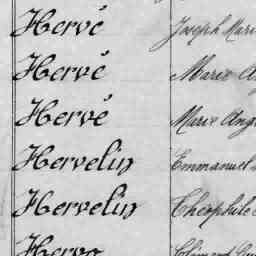 Hervé Joseph Mari
Hervé Marie A
Hervé Marie Ang
Hervelin Emmanuel
Hervelin Théophile
Hervo